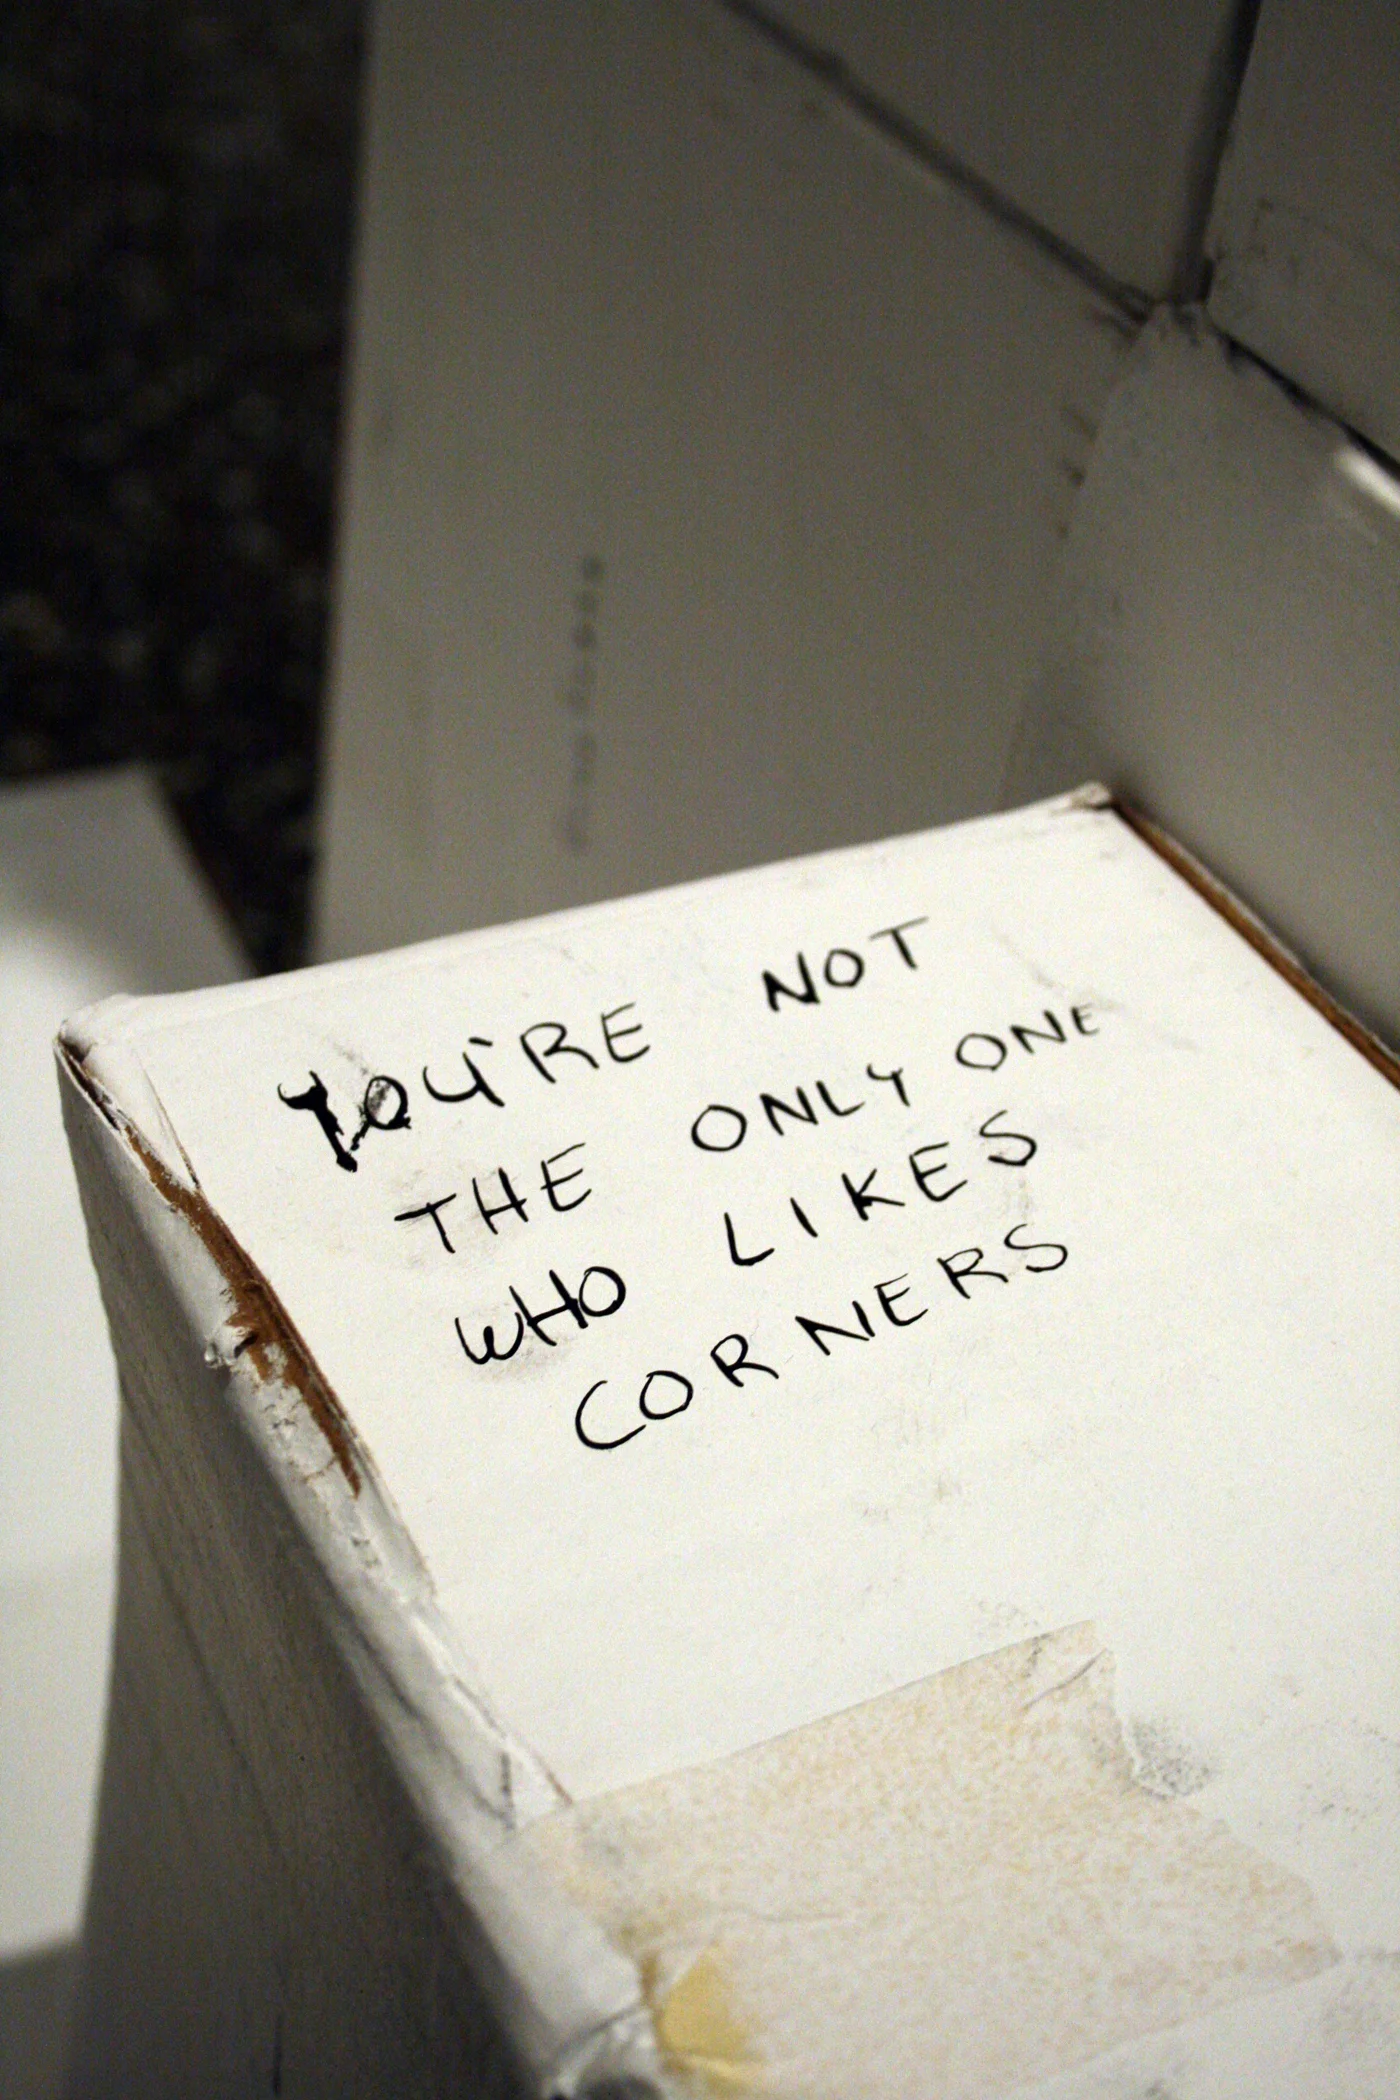 YOU'RE NOT
THE ONLY ONE
WHO LIKES
CORNERS